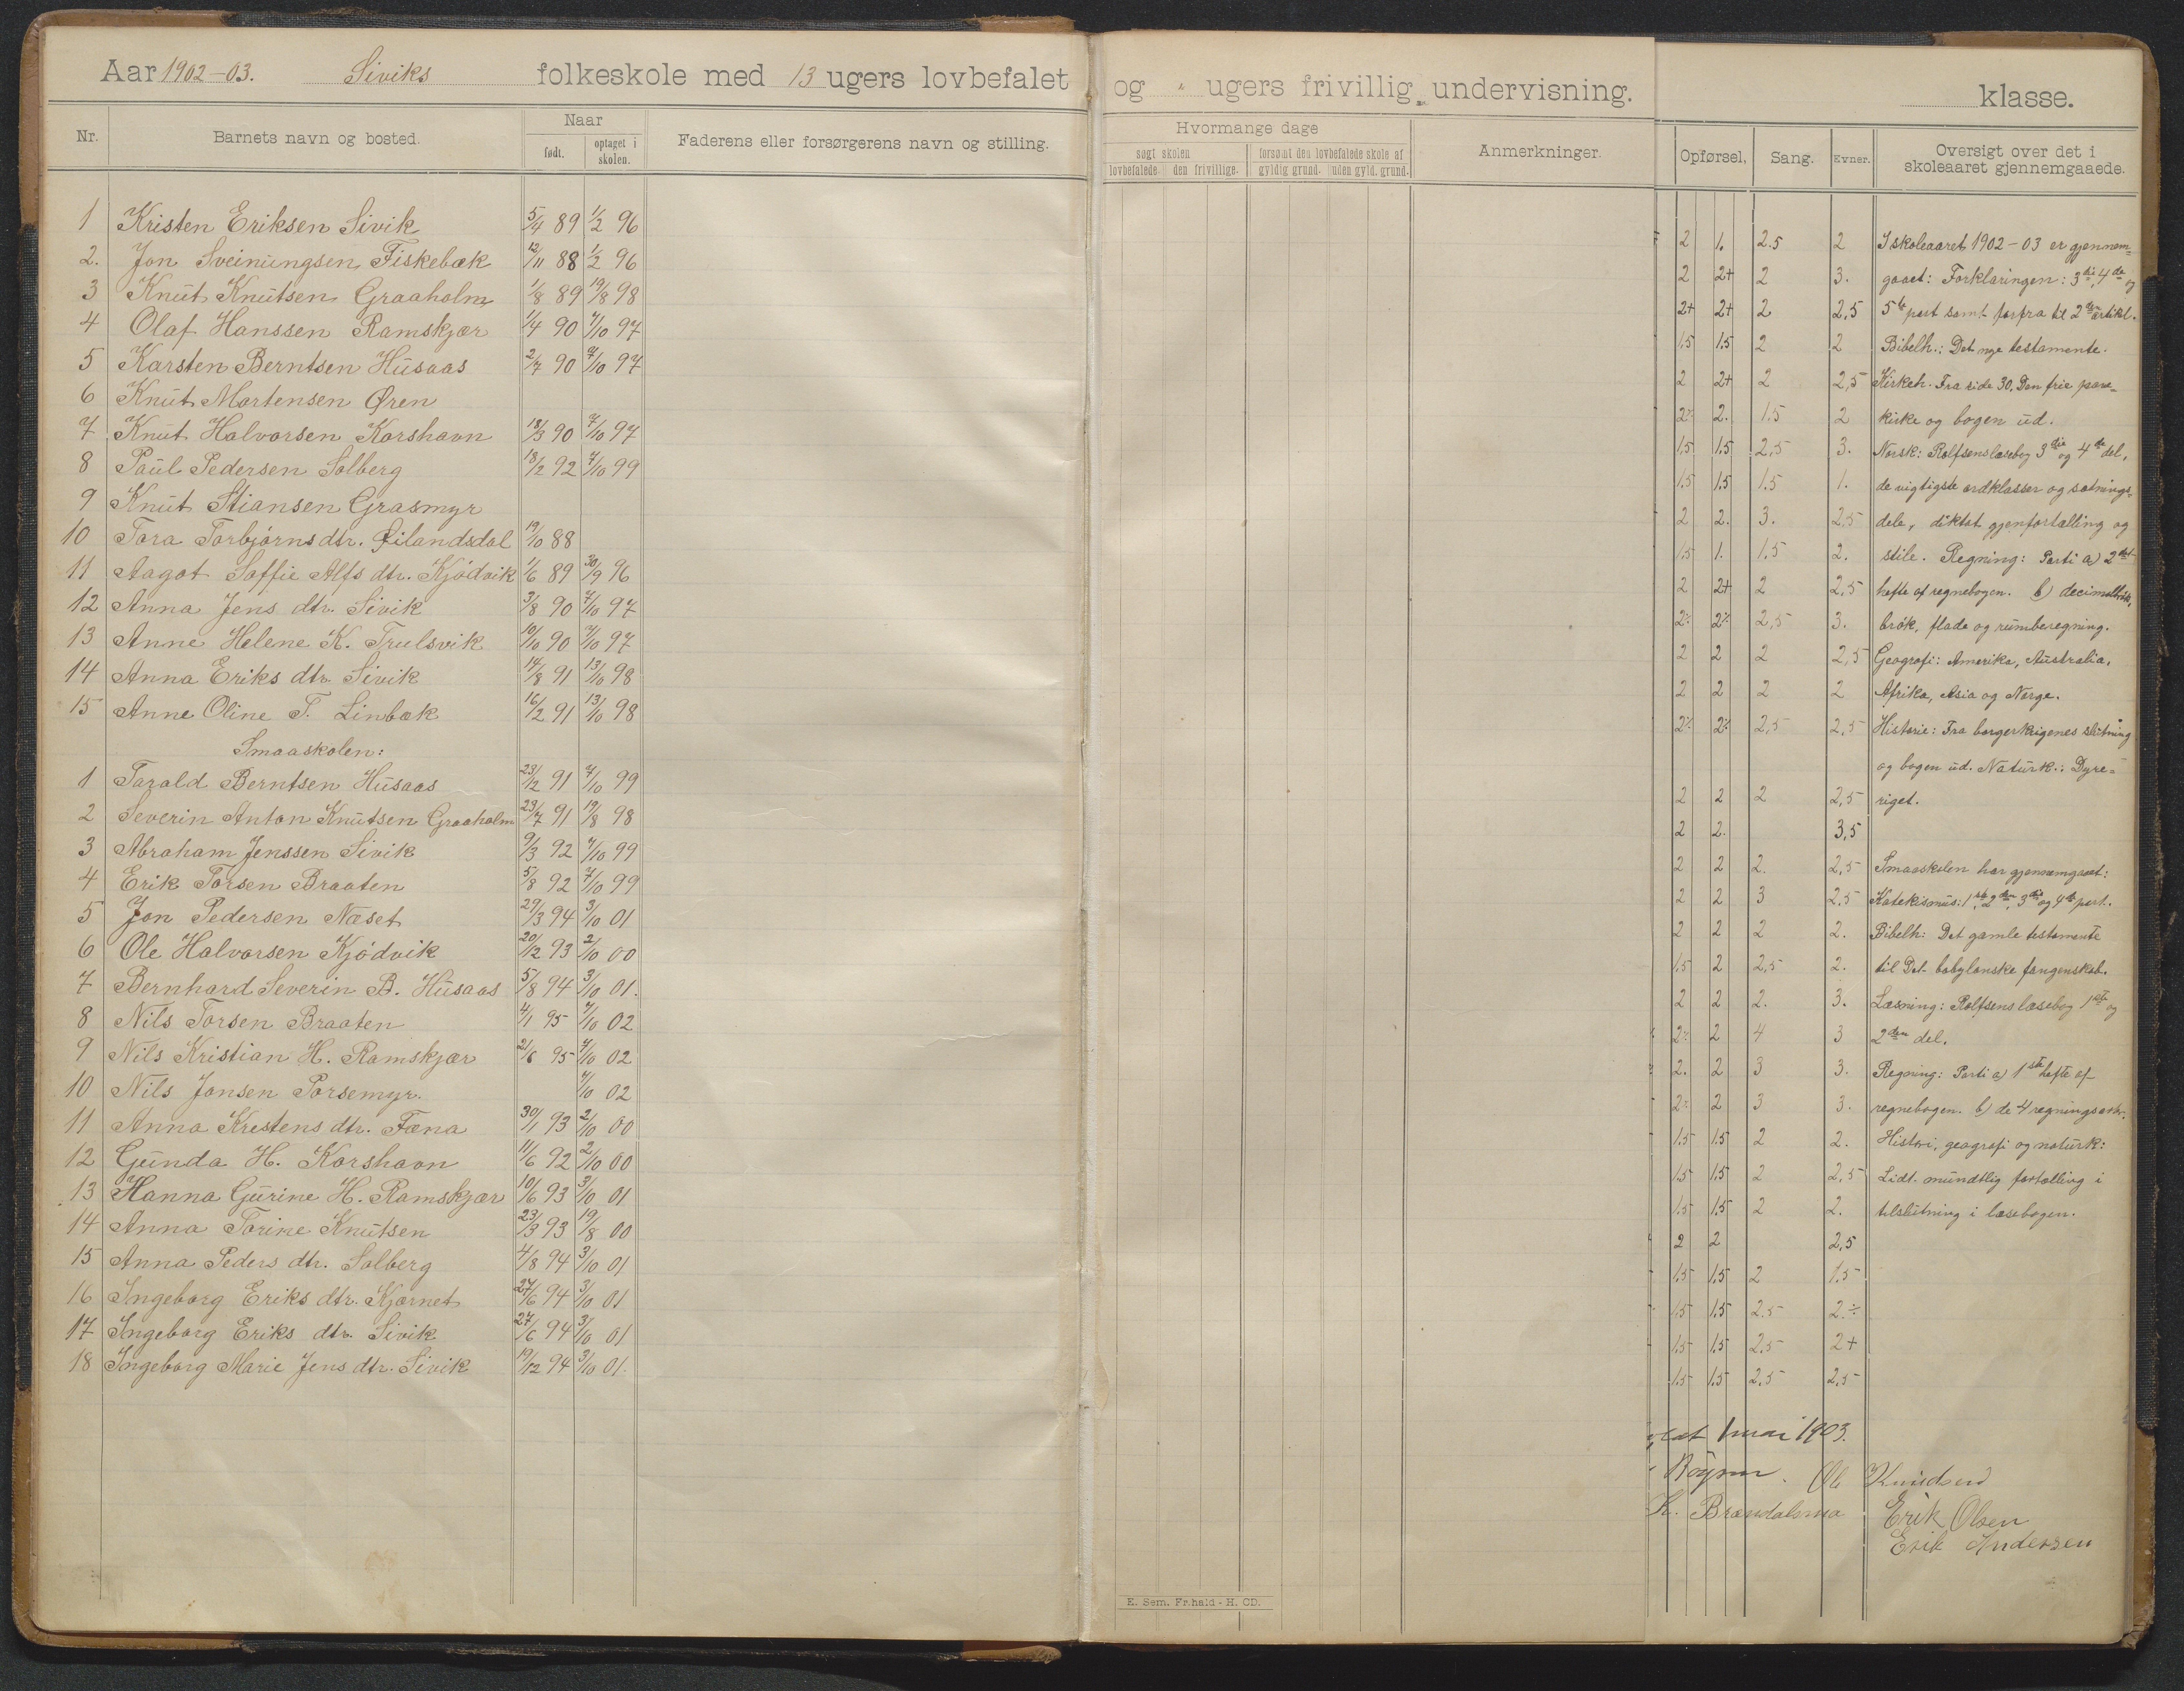 Aar 1902-03. Siviks folkeskole med 13 ugers lovbefalet og " ugers frivillig undervisning. klasse.
Nr. Barnets navn og bosted. Naar født. optaget i skolen. Faderens eller forsørgerens navn og stilling.
Hvormange dage
søgt skolen forsømt den lovbefalede skole af Anmerkninger.
lovbefalede. den frivillige. gyldig grund. uden gyld. grund.
Opførsel. Sang. Evner. Oversigt over det i skoleaaret gjennemgaaede.
1 Kristen Eriksen Sivik 5/4 89 1/2 96
2. Jon Sveinungsen Fiskebæk 12/11 88 1/2 96
3 Knut Knutsen Graaholm 1/8 89 19/8 98
4 Olaf Hanssen Ramskjær 1/4 90 7/10 97
5 Karsten Berntsen Husaas 2/7 90 7/10 97
6 Knut Mortensen Øren
7 Knut Halvorsen Korshavn 18/3 90 7/10 97
8 Paul Pedersen Solberg 18/2 92 7/10 99
9 Knut Stiansen Grasmyr
10 Tora Torbjörns dtr. Øilandsdal 19/10 88
11 Aagot Soffie Alfs dtr. Kjödvik 1/6 89 30/9 96
12 Anna Jens dtr. Sivik 3/8 90 7/10 97
13 Anne Helene K. Trulsvik 10/10 90 7/10 97
14 Anna Eriks dtr. Sivik 14/8 91 13/10 98
15 Anne Oline T. Linbæk 16/2 91 13/10 98
Smaaskolen:
1 Tarald Berntsen Husaas 23/12 91 7/10 99
2 Severin Anton Knutsen Graaholm 23/7 91 19/8 98
3 Abraham Jenssen Sivik 9/3 92 7/10 99
4 Erik Torsen Braaten 5/8 92 7/10 99
5 Jon Pedersen Næset 29/3 94 3/10 01
6 Ole Halvorsen Kjödvik 20/12 93 2/10 00
7 Bernhard Severin B. Husaas 5/8 94 3/10 01.
8 Nils Torsen Braaten 4/1 95 7/10 02
9 Nils Kristian H. Ramskjær 21/6 95 7/10 02
10 Nils Jonsen Porsemyr. 7/10 02
11 Anna Krestens dtr. Fæna 30/1 93 2/10 00
12 Gunda H. Korshavn 11/6 92 2/10 00
13 Hanna Gurine H. Ramskjær 10/6 93 3/10 01
14 Anna Torine Knutsen 23/3 93 19/8 00
15 Anna Peders dtr. Solberg 4/8 94 3/10 01
16 Ingeborg Eriks dtr. Kjærnet 27/6 94 3/10 01
17 Ingeborg Eriks dtr. Sivik 27/6 94 3/10 01
18 Ingeborg Marie Jens dtr. Sivik 19/12 94 3/10 01.
E. Sem. Fr.hald - H. CD.
2 1. 2.5 2 I skoleaaret 1902-03 er gjennem-
2 2+ 2 3. gaaet: Forklaringen: 3die, 4de og
2+ 2+ 2 2,5 5te part samt forfra til 2den artikl.
1.5 1.5 2 2 Bibelh.: Det nye testamente.
2 2+ 2 2,5 Kirkeh. Fra side 30. Den frie pave-
2÷ 2. 1.5 2 kirke og bogen ud.
1,5 1.5 2,5 3. Norsk: Rolfsens læsebog 3die og 4de del,
1.5 1.5 1.5 1. de vigtigste ordklasser og sætnings-
2 2. 3. 2,5 dele, diktat gjenfortælling og
1.5 1. 1.5 2. stile. Regning: Parti a) 2det
2 2+ 2 2,5 hefte af regnebogen. b)
2÷ 2÷ 2,5 3. brök, flade og rumberegning.
2 2 2 2,5 Geografi: Amerika, Australia,
2 2 2 2 Afrika, Asia og Norge.
2÷ 2÷ 2,5 2,5 Historie: Fra borgerkrigenes slutning
og bogen ud. Naturk.: Dyre-
2 2 2 2,5 riget.
2 2. 3,5
2 2 2. 2,5 Smaaskolen har gjennemgaaet:
2 2 3 2.5 Katekismus: 1ste, 2den, 3die og 4de part.
2 2 2 2. Bibelh: Det gamle testamente
1.5 2 2,5 2. til Det babylonske fangenskab.
2 2 2. 3. Læsning: Rolfsens læsebog 1ste og
2÷ 2 4 3 2den del.
2. 2 3 3. Regning: Parti a) 1ste hefte af
2÷ 2 3 3. regnebogen. b) de 4 regningsarter.
1.5 1.5 2 2. Histori, geografi og naturk:
1.5 1.5 2 2,5 Lidt mundtlig fortælling i
1.5 1.5 2 2. tilslutning i læsebogen.
2 2 2,5
1.5 1.5 2 1.5
1.5 1.5 2.5 2.÷
1.5 1.5 2.5 2+
1.5 1.5 2.5 2,5
mai 1903.
Ole Knudsen
K. Erik Olsen
Erik Andersen